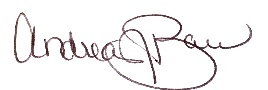 Andrea J Bau